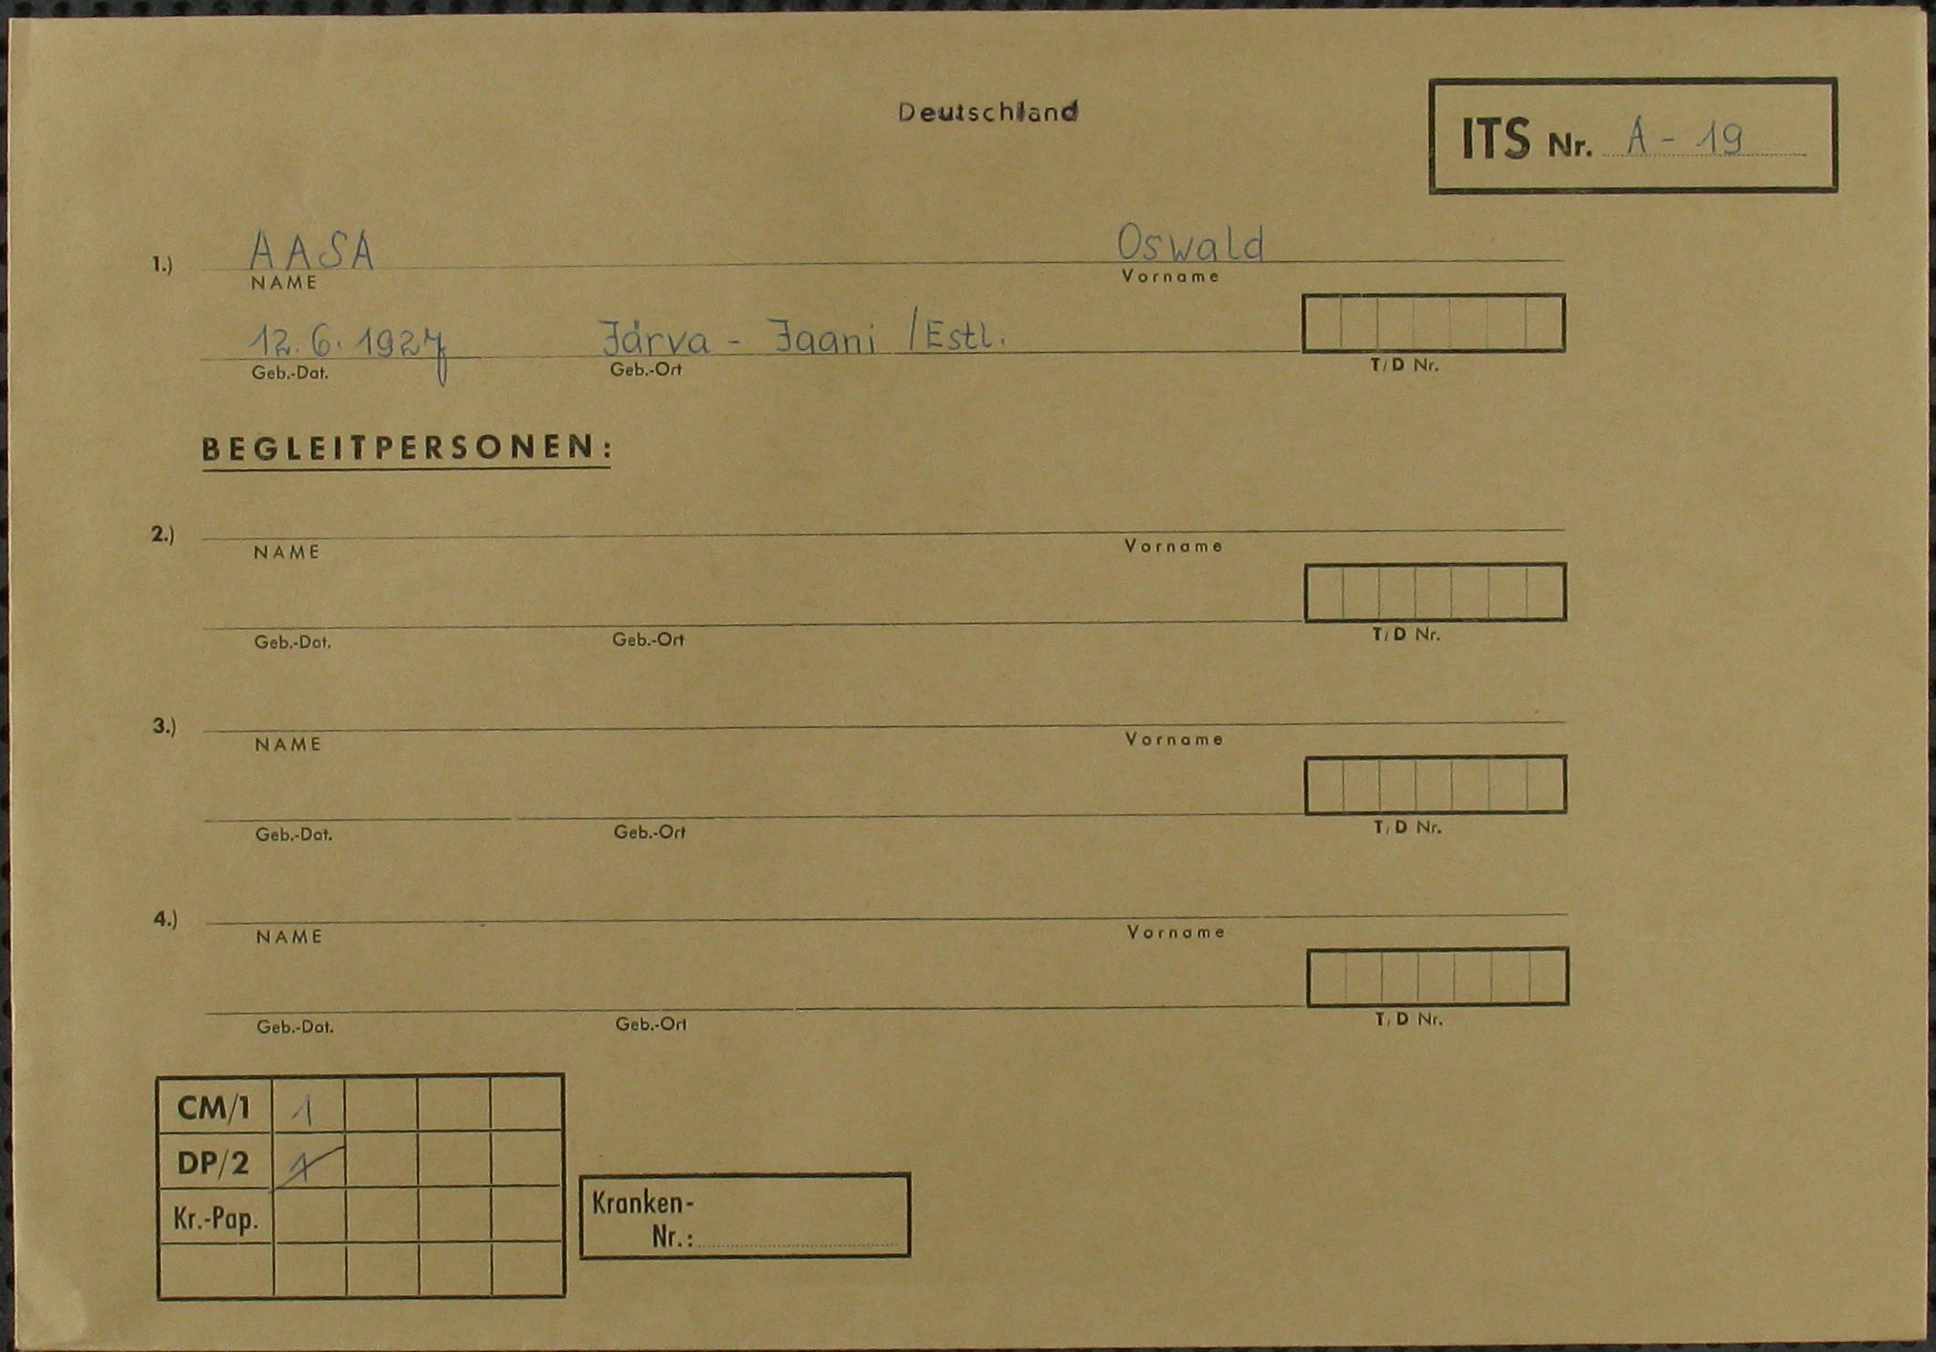 Deutschland
ITS Nr. A - 19
1.) AASA Oswald
NAME Vorname
12.6.1927 Járva - Jaani /Estl.
Geb.-Dat. Geb.-Ort T/D Nr.
BEGLEITPERSONEN:
2.)
NAME Vorname
Geb.-Dat. Geb.-Ort T/D Nr.
3.)
NAME Vorname
Geb.-Dat. Geb.-Ort T/D Nr.
4.)
NAME Vorname
Geb.-Dat. Geb.-Ort T/D Nr.
CM/1 1
DP/2 1
Kr.-Pap.
Kranken-
Nr.: